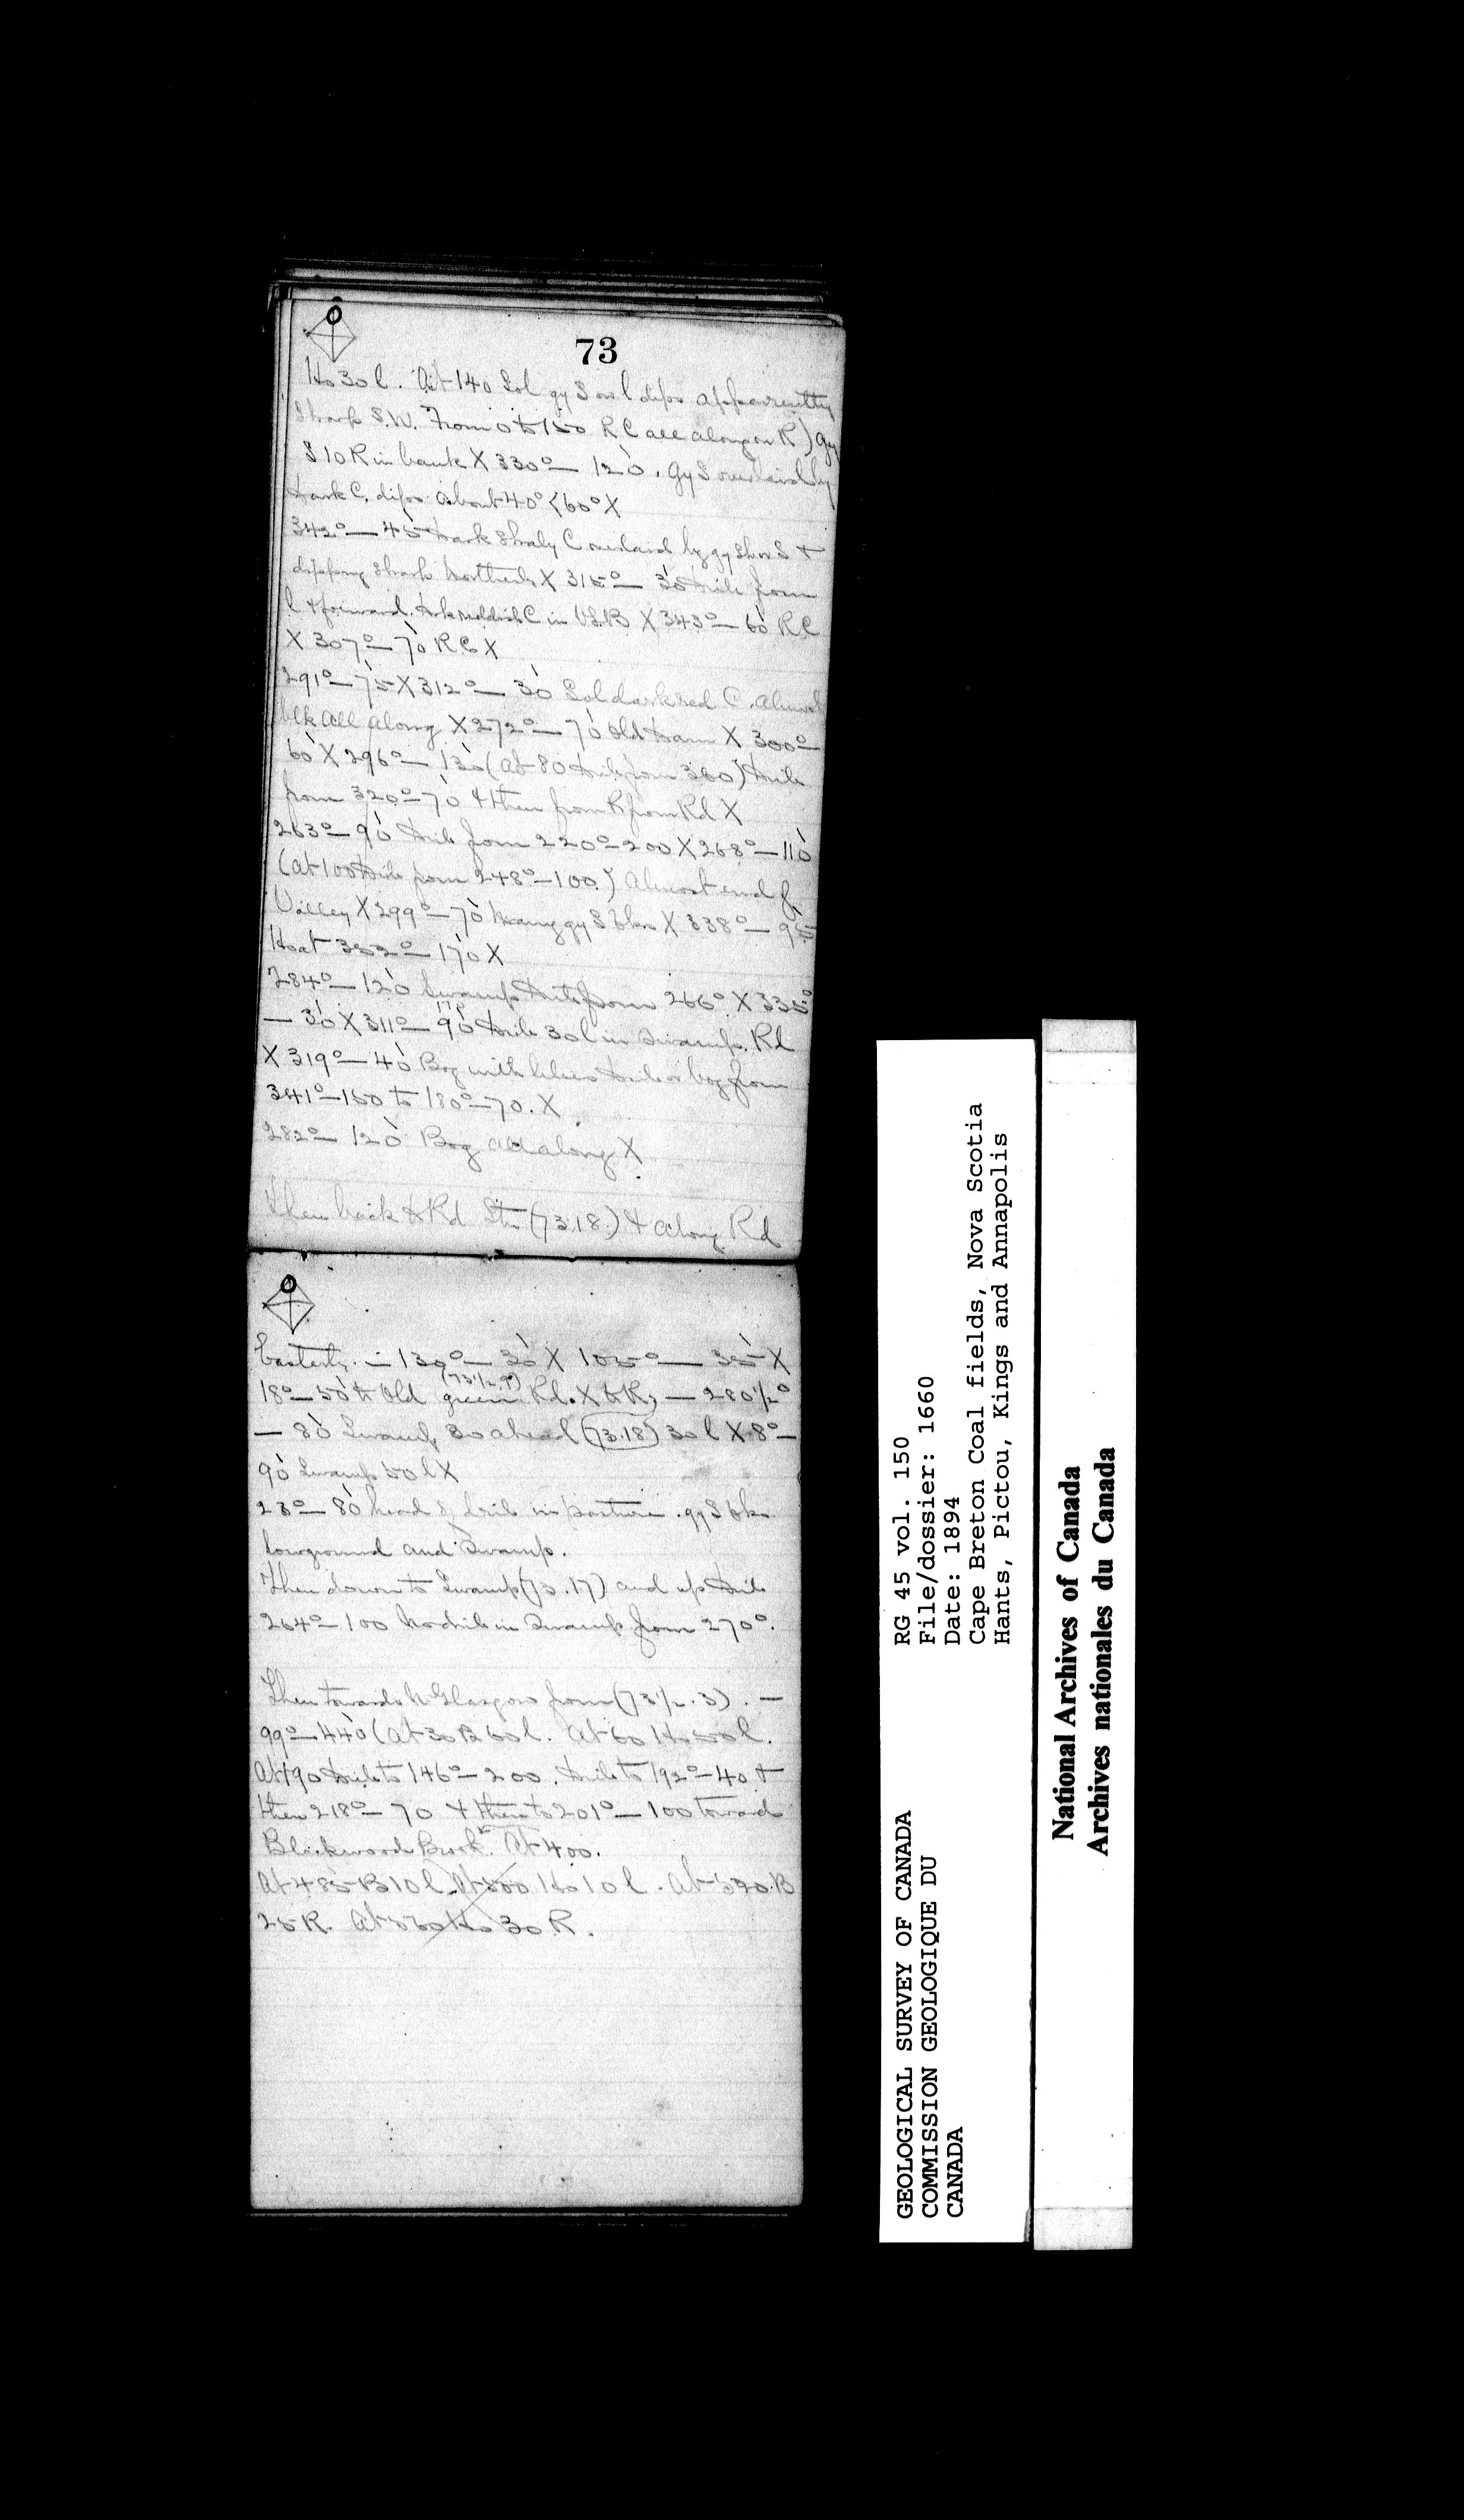 73
Ho 30 l. At 140 Sol gy S on l dips apparently
Sharp S.W. From 0 to 150 R C all along on R) gy
S 10 R in bank X 330° — 120. Gy S overlaid by
dark C. dips about 40° < 60° X
342° — 45 dark Shaly C overlaid by gy S +
dipping sharp Northerly X 315° — 30 from
l + forward. reddish C in X 343° — 60 R.C
X 307° — 70 R.C X
291° — 75 X 312° — 30 Sol dark red C. Almost
blk all along X 272° — 70 old dam X 300° —
60 X 296° — 130 (At 80 from 360)
from 320° — 70 + then from R from Rd X
263° — 90 from 220° — 200 X 268° — 110
(At 100 from 248° — 100.) Almost end of
Valley X 299° — 70 Many gy S bks X 338° — 95
Ho at 352° — 170 X
284° — 120 Swamp from 266°. X 335°
— 30 X 311° — 90 30 l in Swamp. Rd
X 319° — 40 Bog with or bog from
341° — 150 to 180° — 70. X
282° — 120 Bog all along X
Then back to Rd Stn (73.18.) + along Rd
Easterly. — 139° — 30 X 105° — 35 X
18° — 50 to Old green Rd. X to R, — 280 1/2°
— 80 Swamp 30 ahead (73.18) 30 l X 8° —
90 Swamp 50 l X
23° — 80 head of in pasture. gy S bks
low ground and Swamp.
Then down to Swamp (73.17) and up
264° — 100 No in Swamp from 270°.
Then towards N. Glasgow from (73 1/2.3). —
99° — 440 (At 30 B 60 l. At 60 Ho 50 l.
At 190 to 146° — 200. to 192° — 40 +
then 218° — 70 + then to 201° — 100 towards
Blackwood Brook. At 400.
At 485 B 10 l. At 500 Ho 10 l. At 530. B
25 R. At 560 Ho 30 R.
RG 45 vol. 150
File/dossier: 1660
Date: 1894
Cape Breton Coal fields, Nova Scotia
Hants, Pictou, Kings and Annapolis
GEOLOGICAL SURVEY OF CANADA
COMMISSION GEOLOGIQUE DU
CANADA
National Archives of Canada
Archives nationales du Canada